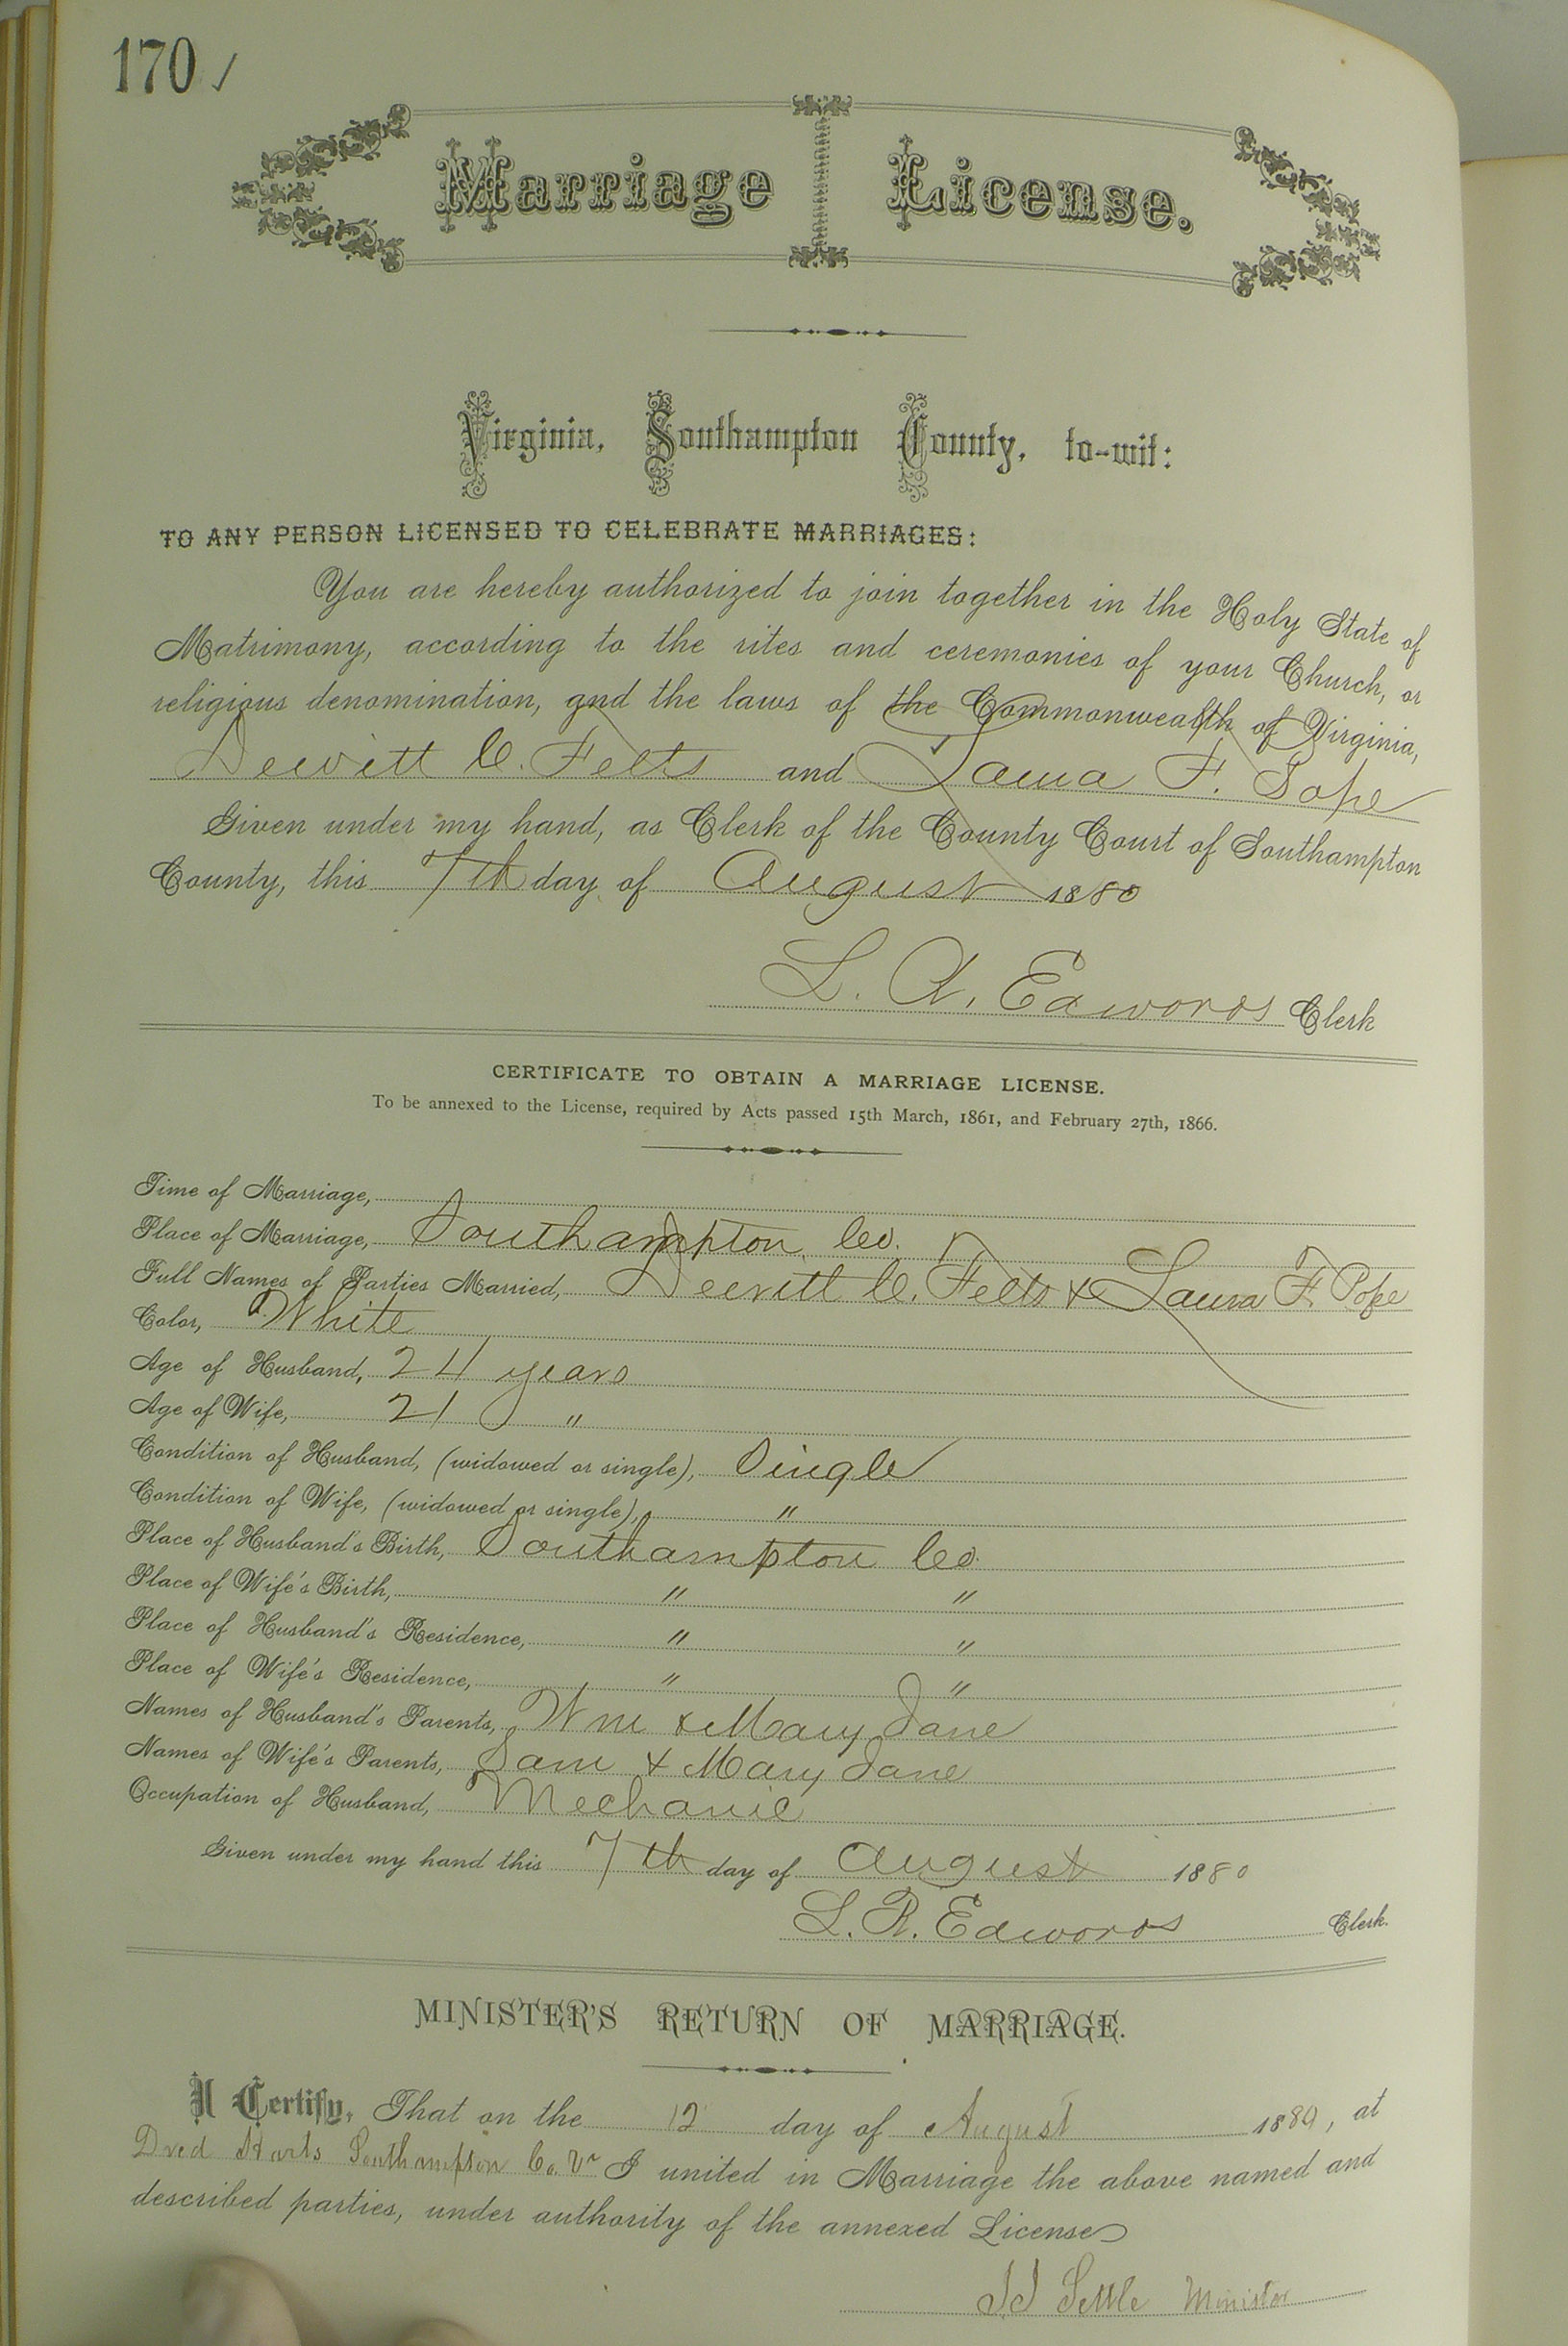 170
Marriage License.
Virginia, Southampton County, to-wit:
TO ANY PERSON LICENSED TO CELEBRATE MARRIAGES:
You are hereby authorized to join together in the Holy State of
Matrimony, according to the rites and ceremonies of your Church, or
religious denomination, and the laws of the Commonwealth of Virginia,
Dewitt C. Felts and Laura F. Pope
Given under my hand, as Clerk of the County Court of Southampton
County, this 7th day of August 1880
L. R. Edwards Clerk
CERTIFICATE TO OBTAIN A MARRIAGE LICENSE.
To be annexed to the License, required by Acts passed 15th March, 1861, and February 27th, 1866.
Time of Marriage,
Place of Marriage, Southampton Co.
Full Names of Parties Married, Dewitt C. Felts & Laura F. Pope
Color, White
Age of Husband, 24 years
Age of Wife, 21 "
Condition of Husband, (widowed or single), Single
Condition of Wife, (widowed or single), "
Place of Husband's Birth, Southampton Co.
Place of Wife's Birth, " "
Place of Husband's Residence, " "
Place of Wife's Residence, " "
Names of Husband's Parents, Wm & Mary Jane
Names of Wife's Parents, Sam & Mary Jane
Occupation of Husband, Mechanic
Given under my hand this 7th day of August 1880
L. R. Edwards Clerk.
MINISTER'S RETURN OF MARRIAGE.
I Certify, That on the 12 day of August 1880, at
Dred Harts Southampton Co. Va I united in Marriage the above named and
described parties, under authority of the annexed License
Settle Minister